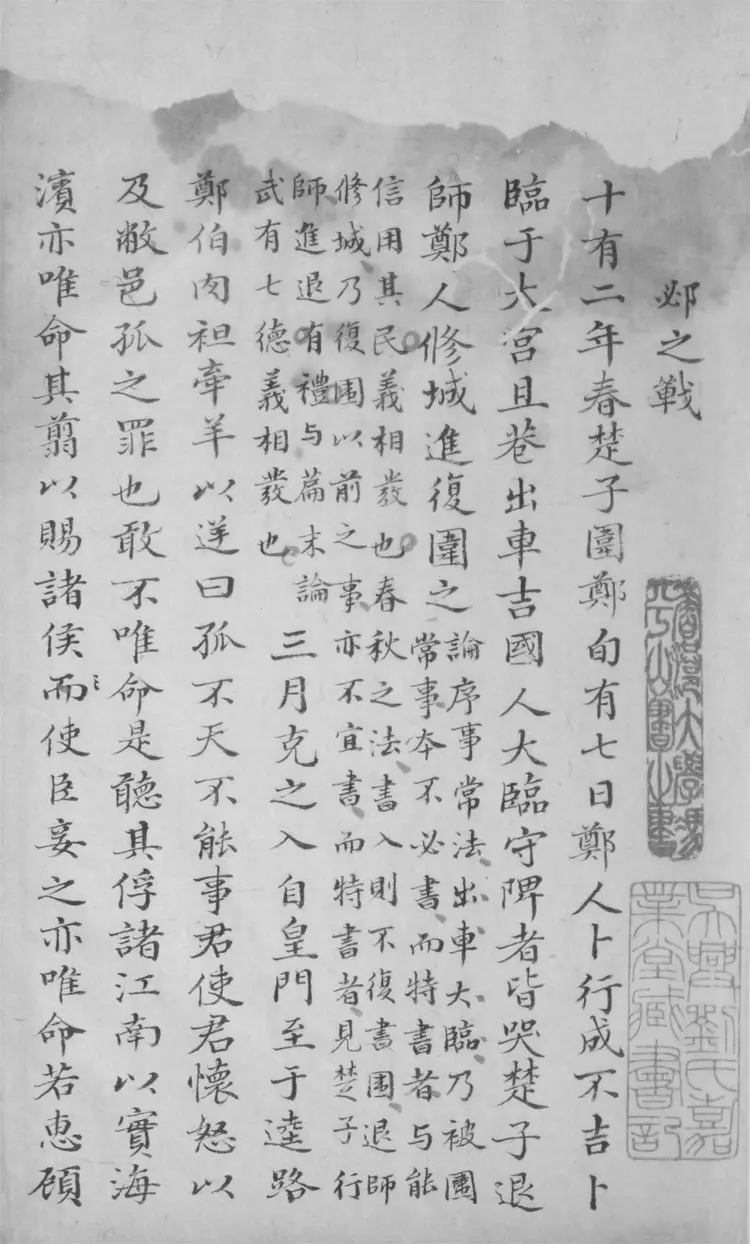 邲之戰
十有二年春楚子圍鄭旬有七日鄭人卜行成不吉卜
臨于大宮且巷出車吉國人大臨守陴者皆哭楚子退
師鄭人修城進復圍之
論序事常法出車大臨乃被圍
常事本不必書而特書者与能
信用其民義相發也春秋之法書入則不復書圍退師
修城乃復圍以前之事亦不宜書而特書者見楚子行
師進退有禮与篇末論
武有七德義相發也
三月克之入自皇門至于逵路
鄭伯肉袒牽羊以逆曰孤不天不能事君使君懷怒以
及敝邑孤之罪也敢不唯命是聽其俘諸江南以實海
濱亦唯命其翦以賜諸侯而使臣妾之亦唯命若惠顧
香港大學馮
平山圖書
吳興劉氏嘉
業堂藏書記